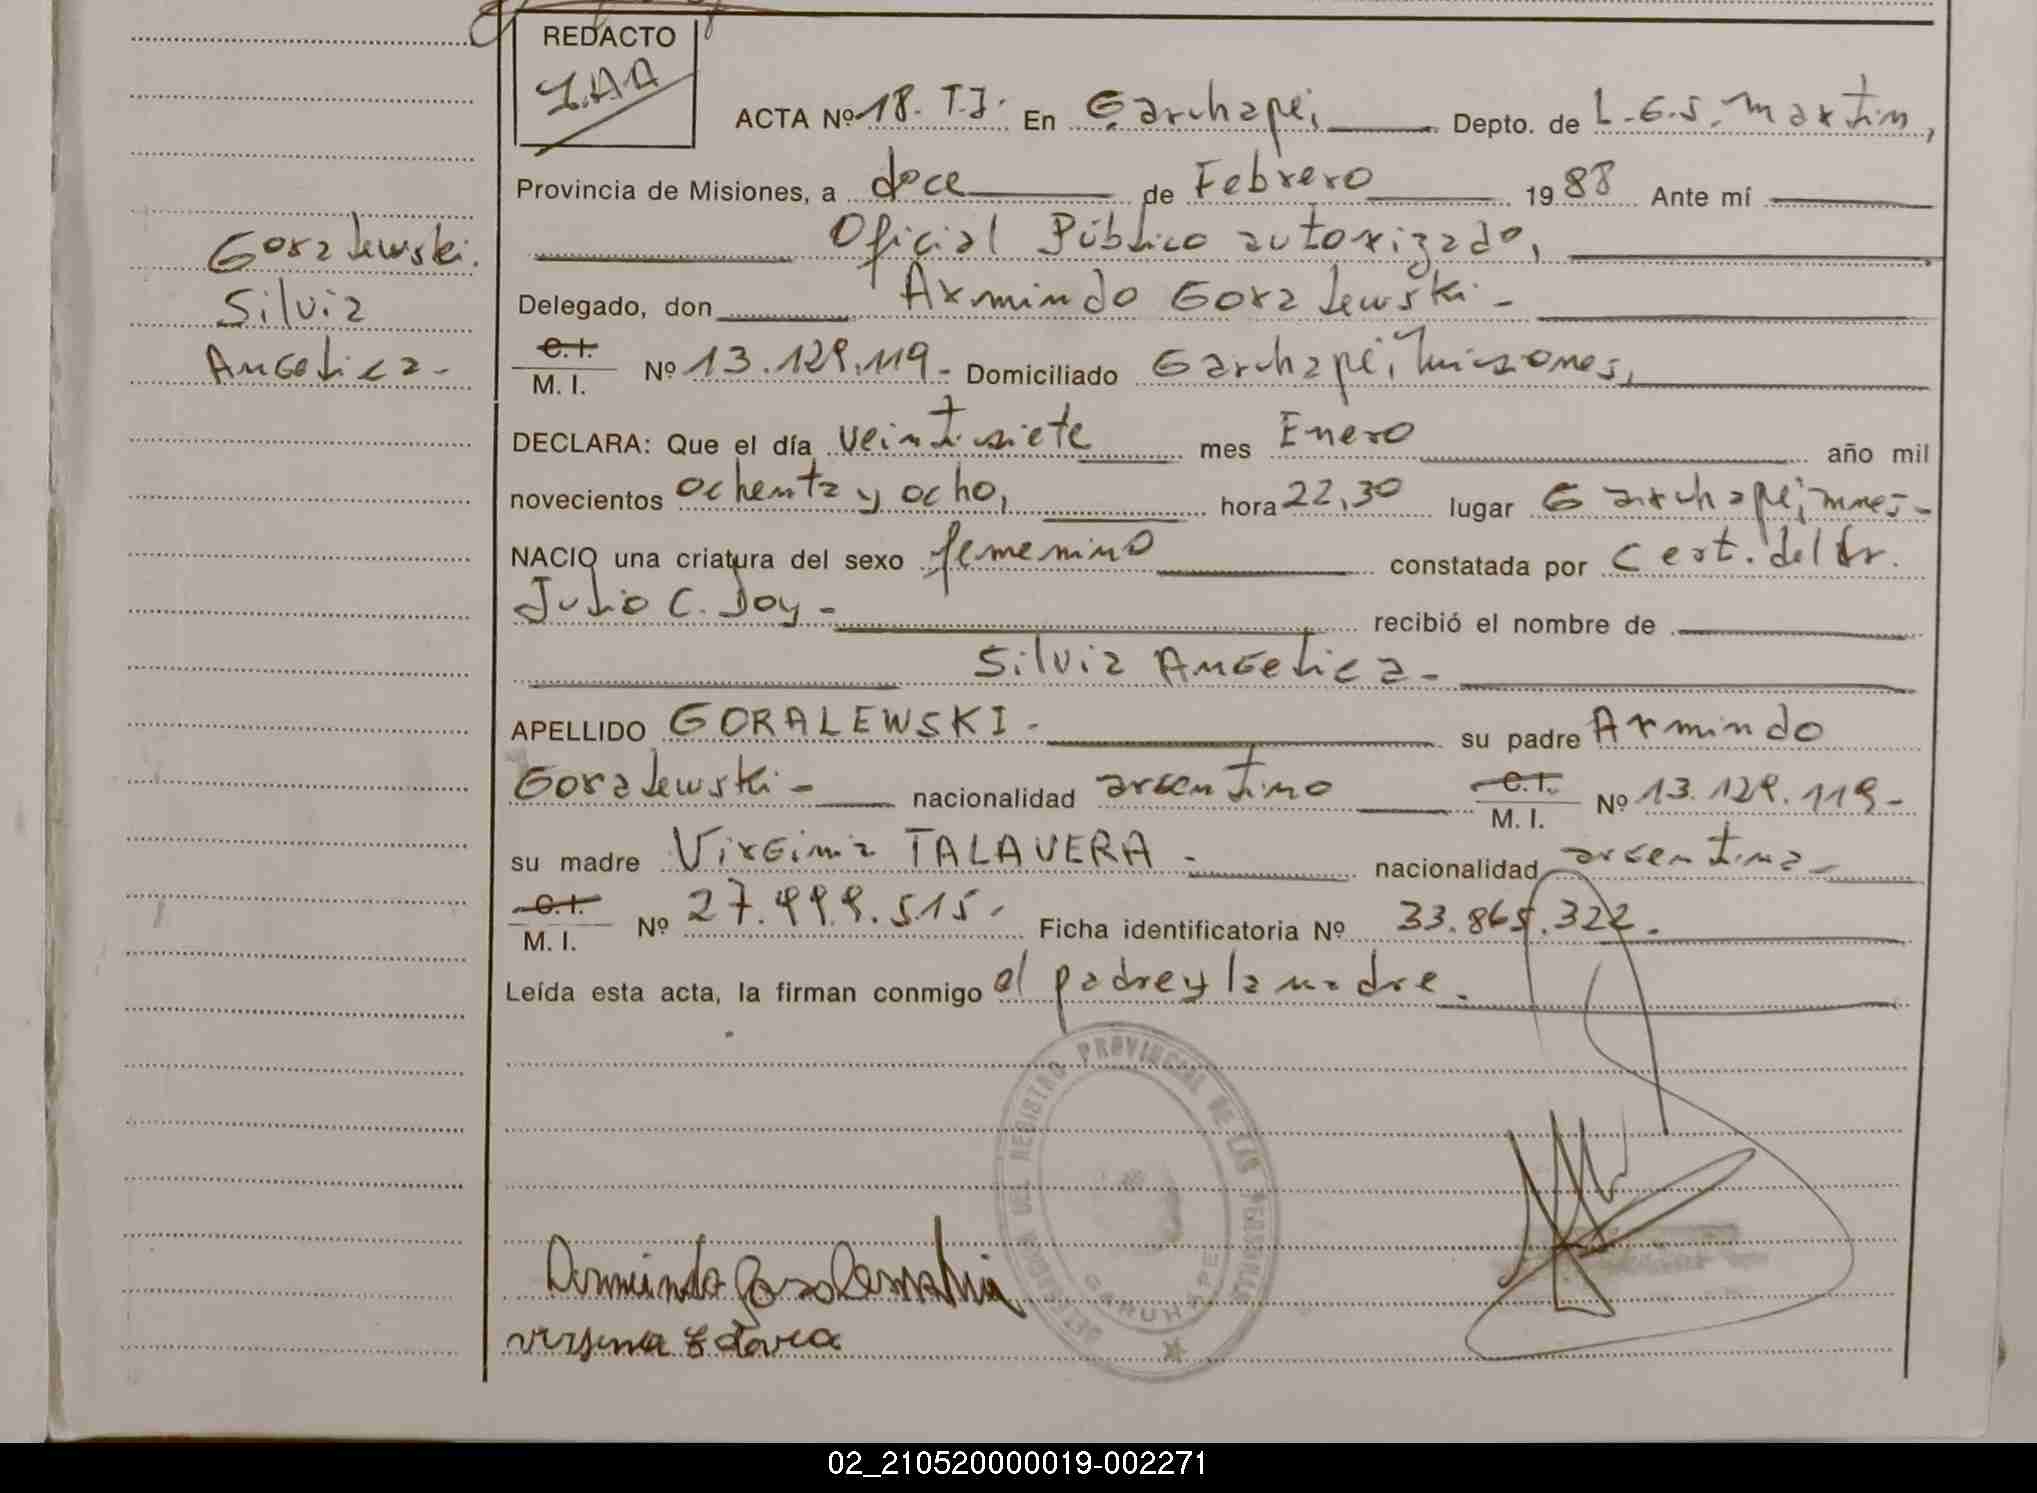 REDACTO
I.A.A
ACTA Nº 18. T.I. En Garuhape, Depto. de L.G.S. Martin,
Provincia de Misiones, a doce de Febrero 1988 Ante mí
Oficial Público autorizado,
Delegado, don Armindo Goralewski -
C.I.
M. I. Nº 13.129.119- Domiciliado Garuhape, misiones,
DECLARA: Que el día veintisiete mes Enero año mil
novecientos ochenta y ocho, hora 22,30 lugar Garuhape, mnes-
NACIO una criatura del sexo femenino constatada por Cert. del Dr.
Julio C. Doy - recibió el nombre de
Silvia Angelica -
APELLIDO GORALEWSKI - su padre Armindo
Goralewski - nacionalidad argentino C.I. M. I. Nº 13.129.119-
su madre Virginia TALAVERA - nacionalidad argentina -
C.I.
M. I. Nº 27.999.515. Ficha identificatoria Nº 33.865.322.
Leída esta acta, la firman conmigo el padre y la madre.
Goralewski.
Silvia
Angelica -
REGISTRO PROVINCIAL DE LAS PERSONAS
GARUHAPE
02_210520000019-002271